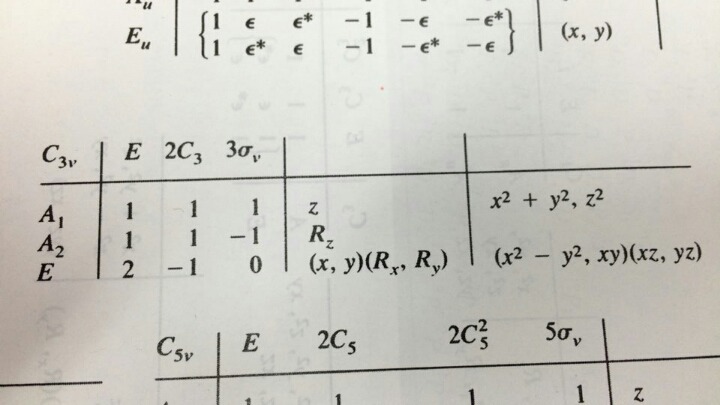 A_u
E_u {1 ϵ ϵ* −1 −ϵ −ϵ*} (x, y)
{1 ϵ* ϵ −1 −ϵ* −ϵ}
C_3v E 2C_3 3σ_v
A_1 1 1 1 z x² + y², z²
A_2 1 1 −1 R_z
E 2 −1 0 (x, y)(R_x, R_y) (x² − y², xy)(xz, yz)
C_5v E 2C_5 2C_5² 5σ_v
1 1 1 1 z